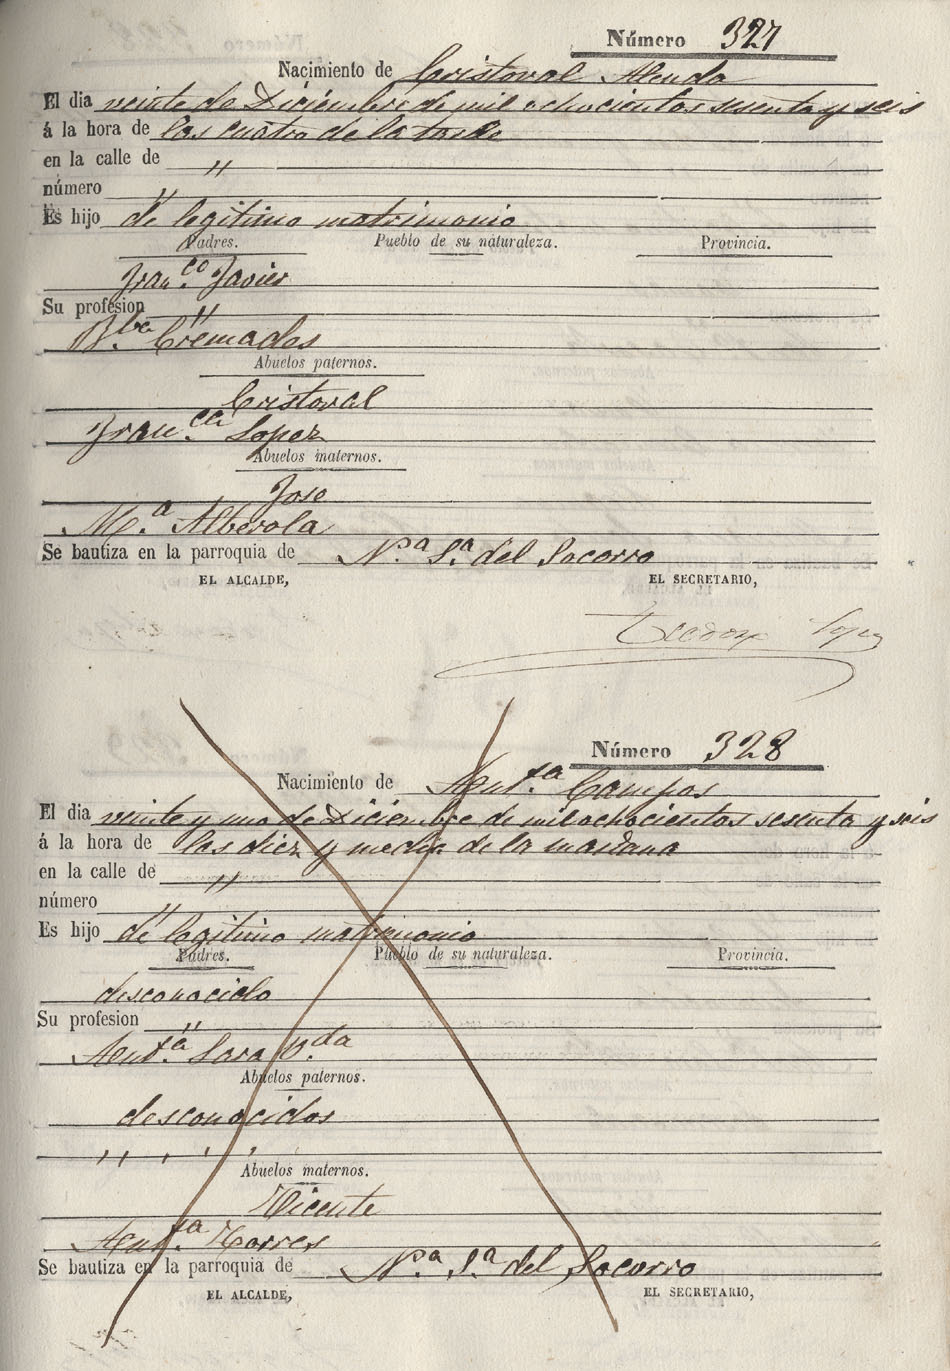 Número 327
Nacimiento de Cristoval Alenda
El dia veinte de Diciembre de mil ochocientos sesenta y seis
á la hora de las cuatro de la tarde
en la calle de "
número "
Es hijo de legitimo matrimonio
Padres. Pueblo de su naturaleza. Provincia.
Fran.co Javier
Su profesion "
B.ba Cremades
Abuelos paternos.
Cristoval
Fran.ca Lopez
Abuelos maternos.
Jose
M.a Alberola
Se bautiza en la parroquia de N.a S.a del Socorro
EL ALCALDE, EL SECRETARIO,
Número 328
Nacimiento de Ant.a Campos
El dia veinte y uno de Diciembre de mil ochocientos sesenta y seis
á la hora de las diez y media de la mañana
en la calle de "
número "
Es hijo de legitimo matrimonio
Padres. Pueblo de su naturaleza. Provincia.
desconocido
Su profesion "
Ant.a V.da
Abuelos paternos.
desconocidos
" " " "
Abuelos maternos.
Vicente
Ant.a Torres
Se bautiza en la parroquia de N.a S.a del Socorro
EL ALCALDE, EL SECRETARIO,